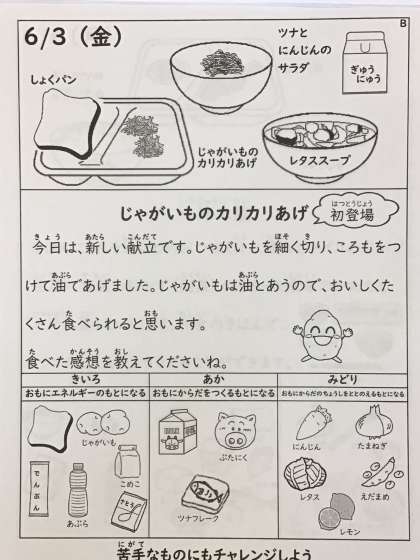 B
6/3（金）
ツナと
にんじんの
サラダ
ぎゅう
にゅう
しょくパン
じゃがいもの
カリカリあげ
レタススープ
じゃがいものカリカリあげ
はつとうじょう
初登場
きょう あたら こんだて ほそ き
今日は、新しい献立です。じゃがいもを細く切り、ころもをつ
あぶら あぶら
けて油であげました。じゃがいもは油とあうので、おいしくた
た おも
くさん食べられると思います。
た かんそう おし
食べた感想を教えてくださいね。
きいろ あか みどり
おもにエネルギーのもとになる おもにからだをつくるもとになる おもにからだのちょうしをととのえるもとになる
じゃがいも
こめこ
でんぷん
あぶら
さとう
ぶたにく
ツナフレーク
にんじん
たまねぎ
レタス
えだまめ
レモン
にがて
苦手なものにもチャレンジしよう